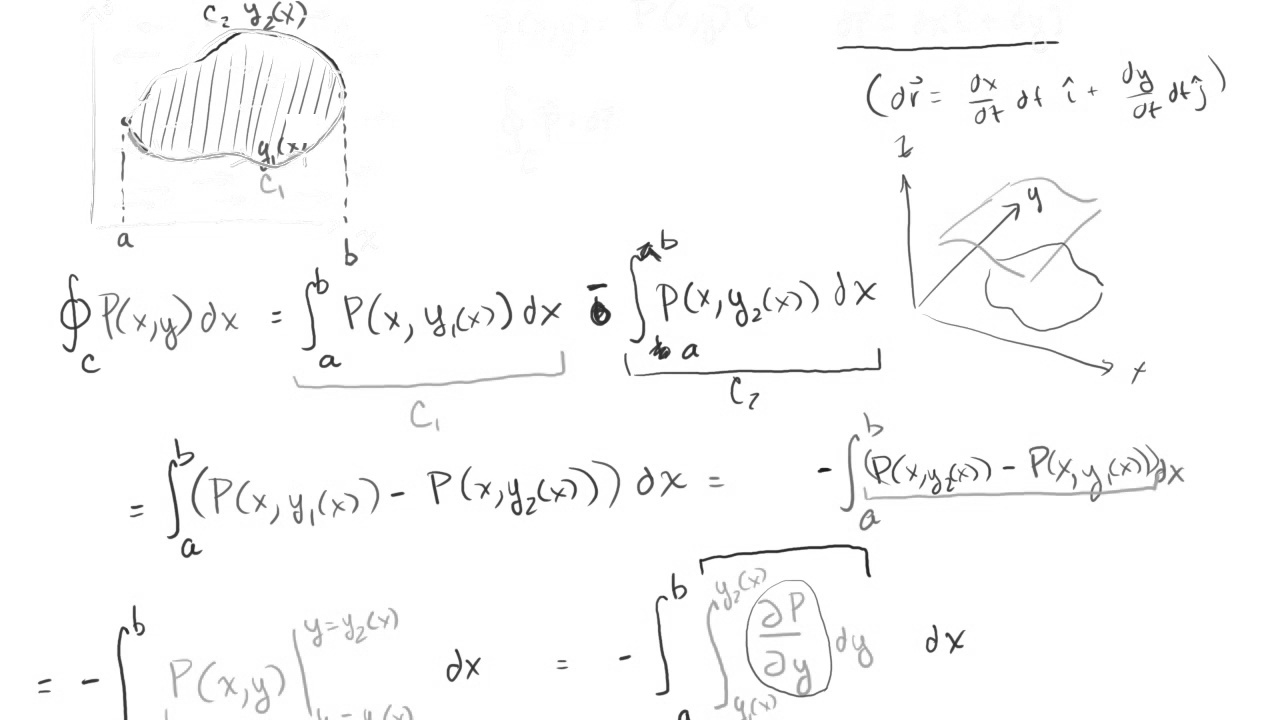 C₂ y₂(x)
(dr⃗ = dx/dt dt î + dy/dt dt ĵ)
y₁(x)
C₁
a
b
z
y
x
∮_C P(x,y) dx = ∫_a^b P(x, y₁(x)) dx - ∫_a^b P(x, y₂(x)) dx
C₁
C₂
= ∫_a^b (P(x, y₁(x)) - P(x, y₂(x))) dx = - ∫_a^b (P(x, y₂(x)) - P(x, y₁(x))) dx
= - ∫^b P(x,y) |^{y=y₂(x)} dx = - ∫_a^b ∫_{y₁(x)}^{y₂(x)} ∂P/∂y dy dx